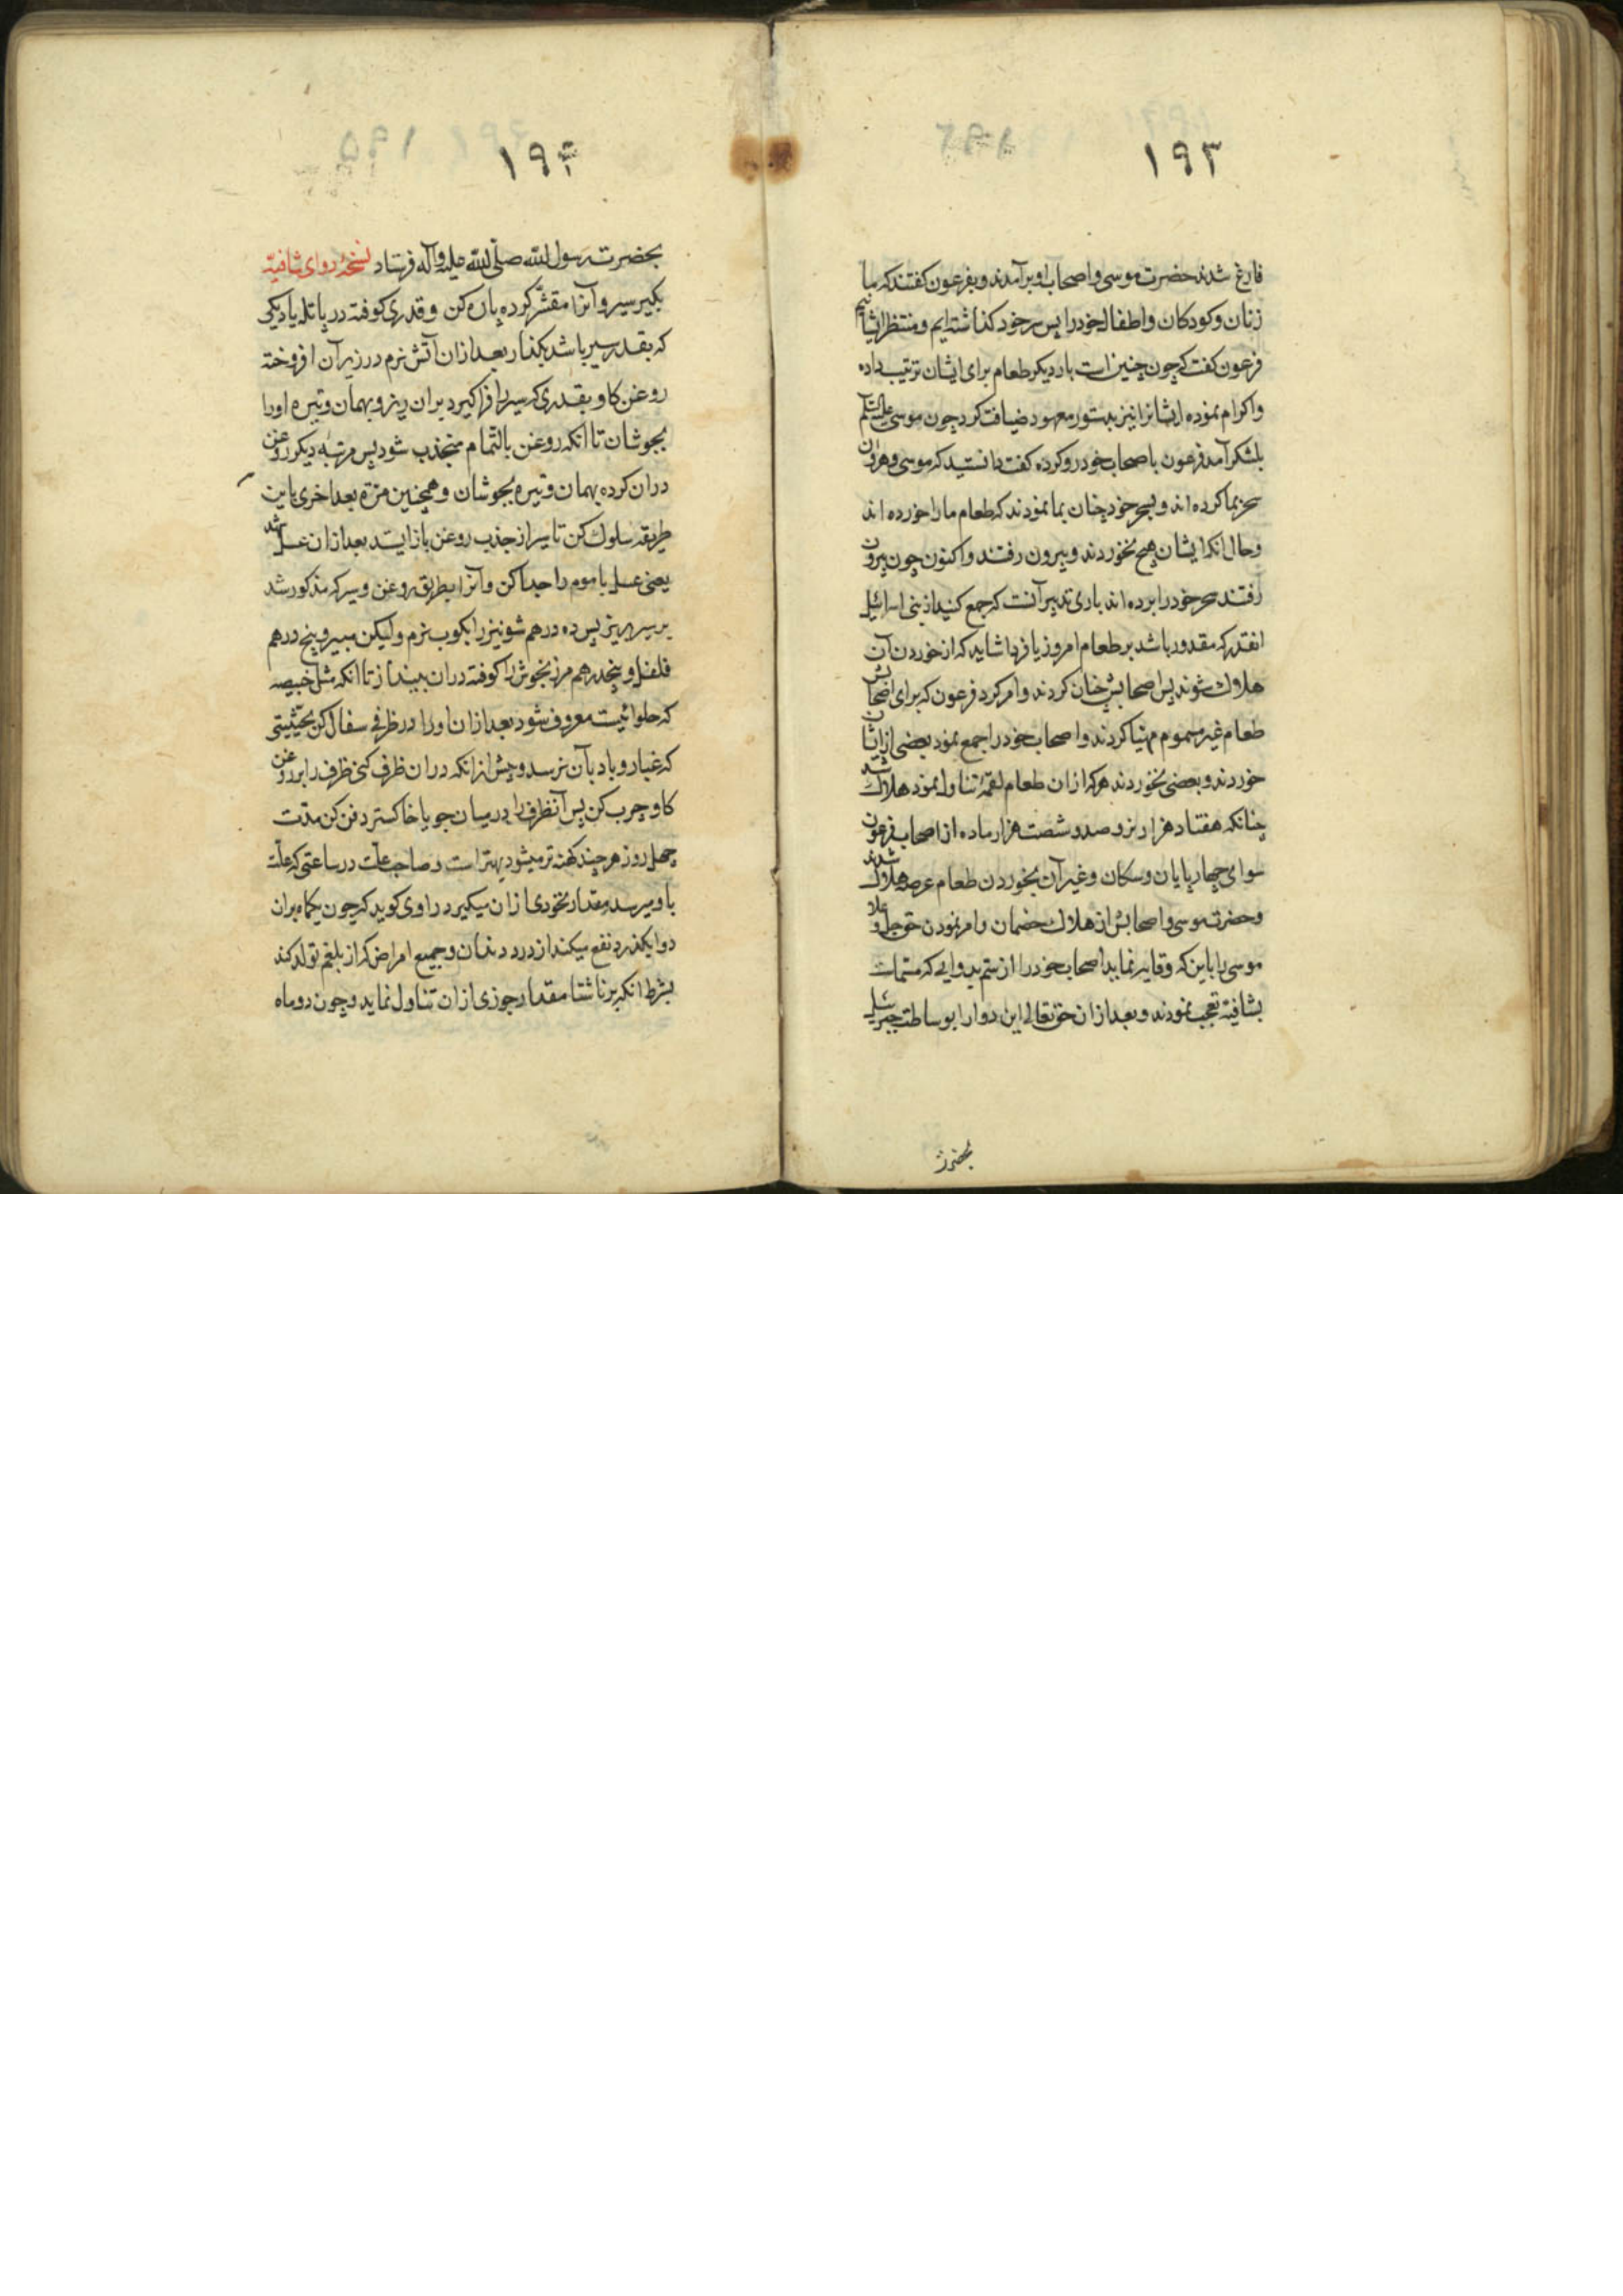 ۱۹۳
فارغ شدند حضرت موسی و اصحاب او برآمدند و بفرعون کفتند که ما
زنان و کودکان و اطفال خود را پس سر خود کذاشته ایم و منتظر ایشانیم
فرعون کفت که چون چنین است بار دیکر طعام برای ایشان ترتیب داده
و اکرام نموده ایشانرا نیز بدستور معهود ضیافت کرد چون موسی علیه السلم
بلشکر آمد فرعون باصحاب خود رو کرده کفت دانستید که موسی و هرون
سحر بما کرده اند و بسحر خود چنان بما نمودند که طعام ما را خورده اند
و حال انکه ایشان هیچ نخوردند و بیرون رفتند و اکنون چون بیرون
رفتند سحر خود را برده اند باری تدبیر آنست که جمع کنید از بنی اسرائیل
انقدر که مقدور باشد بر طعام امروز یا فردا شاید که از خوردن آن
هلاک شوند پس اصحابش چنان کردند و امر کرد فرعون که برای اصحابش
طعام غیر مسموم مهیا کردند و اصحاب خود را جمع نمود بعضی از ایشان
خوردند و بعضی نخوردند هر که از ان طعام لقمهٔ تناول نمود هلاک شد
چنانکه هفتاد هزار نر و صد و شصت هزار ماده از اصحاب فرعون
سوای چهارپایان و سکان و غیر آن بخوردن طعام عرصه هلاک شدند
و حضرت موسی و اصحابش از هلاک خصمان و امر نمودن حق جل و علا
موسی را باین که وقایه نماید اصحاب خود را از سم بدوایی که مسمات
بشافیة تعجب نمودند و بعد از ان حق تعالی این دوا را بوساطت جبرئیل
بحضرت
۱۹۴
بحضرت رسول الله صلی الله علیه و آله فرستاد نسخهٔ دوای شافیة
بکیر سیر و آنرا مقشّر کرده پاره کن و قدری کوفته در پاتله یا دیکی
که بقدر سیر باشد بکذار بعد از ان آتش نرم در زیر آن افروخته
روغن کاو بقدری که سیر را فراکیرد بران ریز و بهمان وتیره او را
بجوشان تا انکه روغن بالتّمام منجذب شود پس مرتبه دیکر روغن
دران کرده بهمان وتیره بجوشان و همچنین مرّة بعد اخری باین
طریقه سلوک کن تا سیر از جذب روغن باز ایستد بعد از ان عسل شهد
یعنی عسل با موم را جدا کن و آنرا بطریق روغن و سیر که مذکور شد
بر سیر بریز پس ده درهم شونیز را بکوب نرم و لیکن مبیز و پنج درهم
فلفل و پنجدرهم مرزنجوش را کوفته دران بینداز تا انکه مثل خبیصه
که حلوائیست معروف شود بعد از ان او را در ظرفی سفال کن بحیثیتی
که غبار و باد بآن نرسد و پیش از انکه دران ظرف کنی ظرف را بروغن
کاو چرب کن پس آنظرف را در میان جو یا خاکستر دفن کن مدّت
چهل روز هر چند کهنه تر میشود بهتر است و صاحب علّت در ساعتی که علّة
باو میرسد مقدار نخودی از ان میکیرد راوی کوید که چون یکماه بران
دوا بکذرد نفع میکند از درد دندان و جمیع امراض که از بلغم تولد کند
بشرط انکه بر ناشتا مقدار جوزی از ان تناول نماید و چون دو ماه